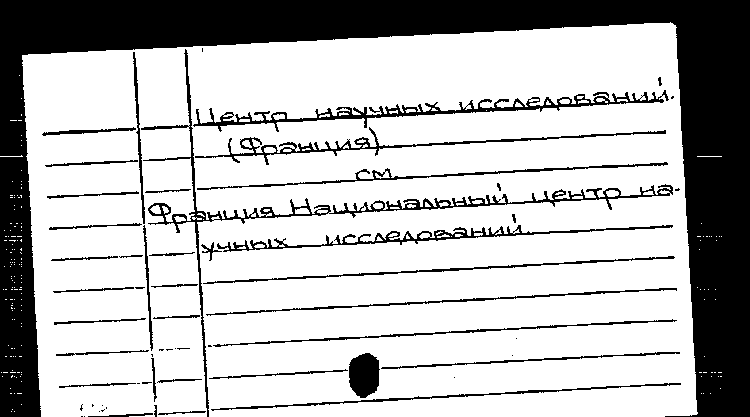 Центр научных исследований.
(Франция)
см.
Франция Национальный центр на-
учных исследований.